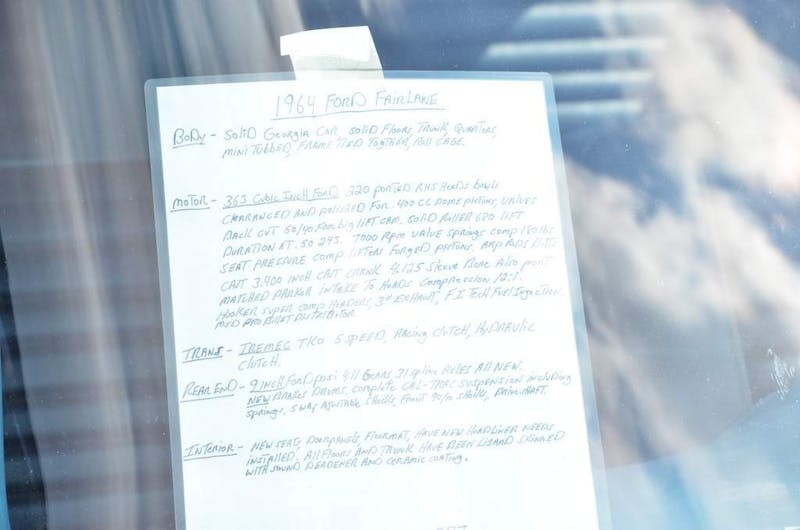 1964 FORD FAIRLANE
BODY - SOLID GEORGIA CAR SOLID FLOORS, TRUNK, QUARTERS,
MINI TUBBED, FRAME TIED TOGETHER, ROLL CAGE.
MOTOR - 363 CUBIC INCH FORD 220 PORTED RHS HEADS BOWLS
CLEARANCED AND POLISHED FOR .400 CC DOME PISTONS, VALVES
BACK CUT 50/40 FOR BIG LIFT CAM. SOLID ROLLER 680 LIFT
DURATION AT .50 243. 7000 RPM VALUE SPRINGS COMP 180 lbs
SEAT PRESSURE COMP LIFTERS FORGED PISTONS, ARP RODS BOLTS
CAST 3.400 INCH CAST CRANK 4.125 SLEEVE BORE ALSO PORT
MATCHED PARKER INTAKE TO HEADS COMPRESSION 12:1.
HOOKER SUPER COMP HEADERS, 3" EXHAUST, F.I TECH FUEL INJECTION
MSD PRO BILLET DISTRIBUTOR
TRANS - TREMEC TKO 5 SPEED, RACING CLUTCH, HYDRAULIC
CLUTCH.
REAR END - 9 INCH FORD POSI 4.11 GEARS 31 SPLINE AXLES ALL NEW.
NEW BRAKES DRUMS. COMPLETE CAL-TRAC SUSPENSION INCLUDING
SPRINGS, 5 WAY ADJUSTABLE SHOCKS, FRONT 90/10 SHOCKS, DRIVE SHAFT.
INTERIOR - NEW SEATS, DOOR PANELS, FLOORMAT, HAVE NEW HEADLINER NEEDS
INSTALLED. ALL FLOORS AND TRUNK HAVE BEEN LIZARD SKINNED
WITH SOUND DEADENER AND CERAMIC COATING.